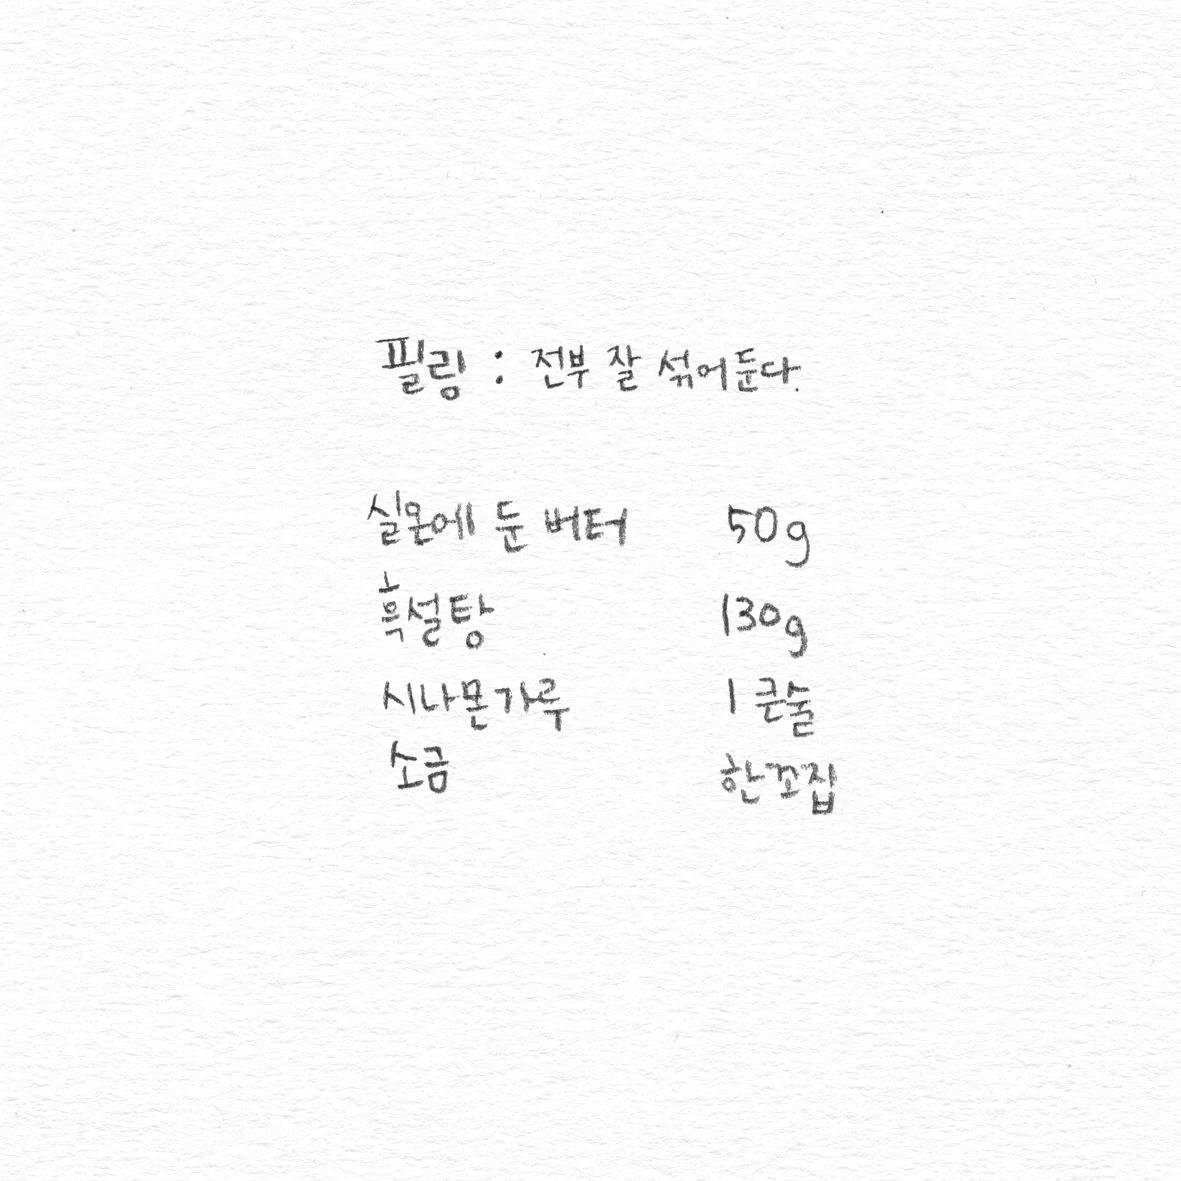 필링 : 전부 잘 섞어둔다.
실온에 둔 버터 50g
흑설탕 130g
시나몬가루 1 큰술
소금 한꼬집